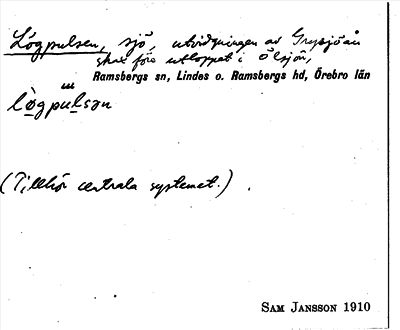 Lógpulsen, sjö, utvidgningen av Grysjöån
strax före utloppet i Ölsjön,
Ramsbergs sn, Lindes o. Ramsbergs hd, Örebro län
lògpulsən
(Tillhör centrala systemet.)
SAM JANSSON 1910